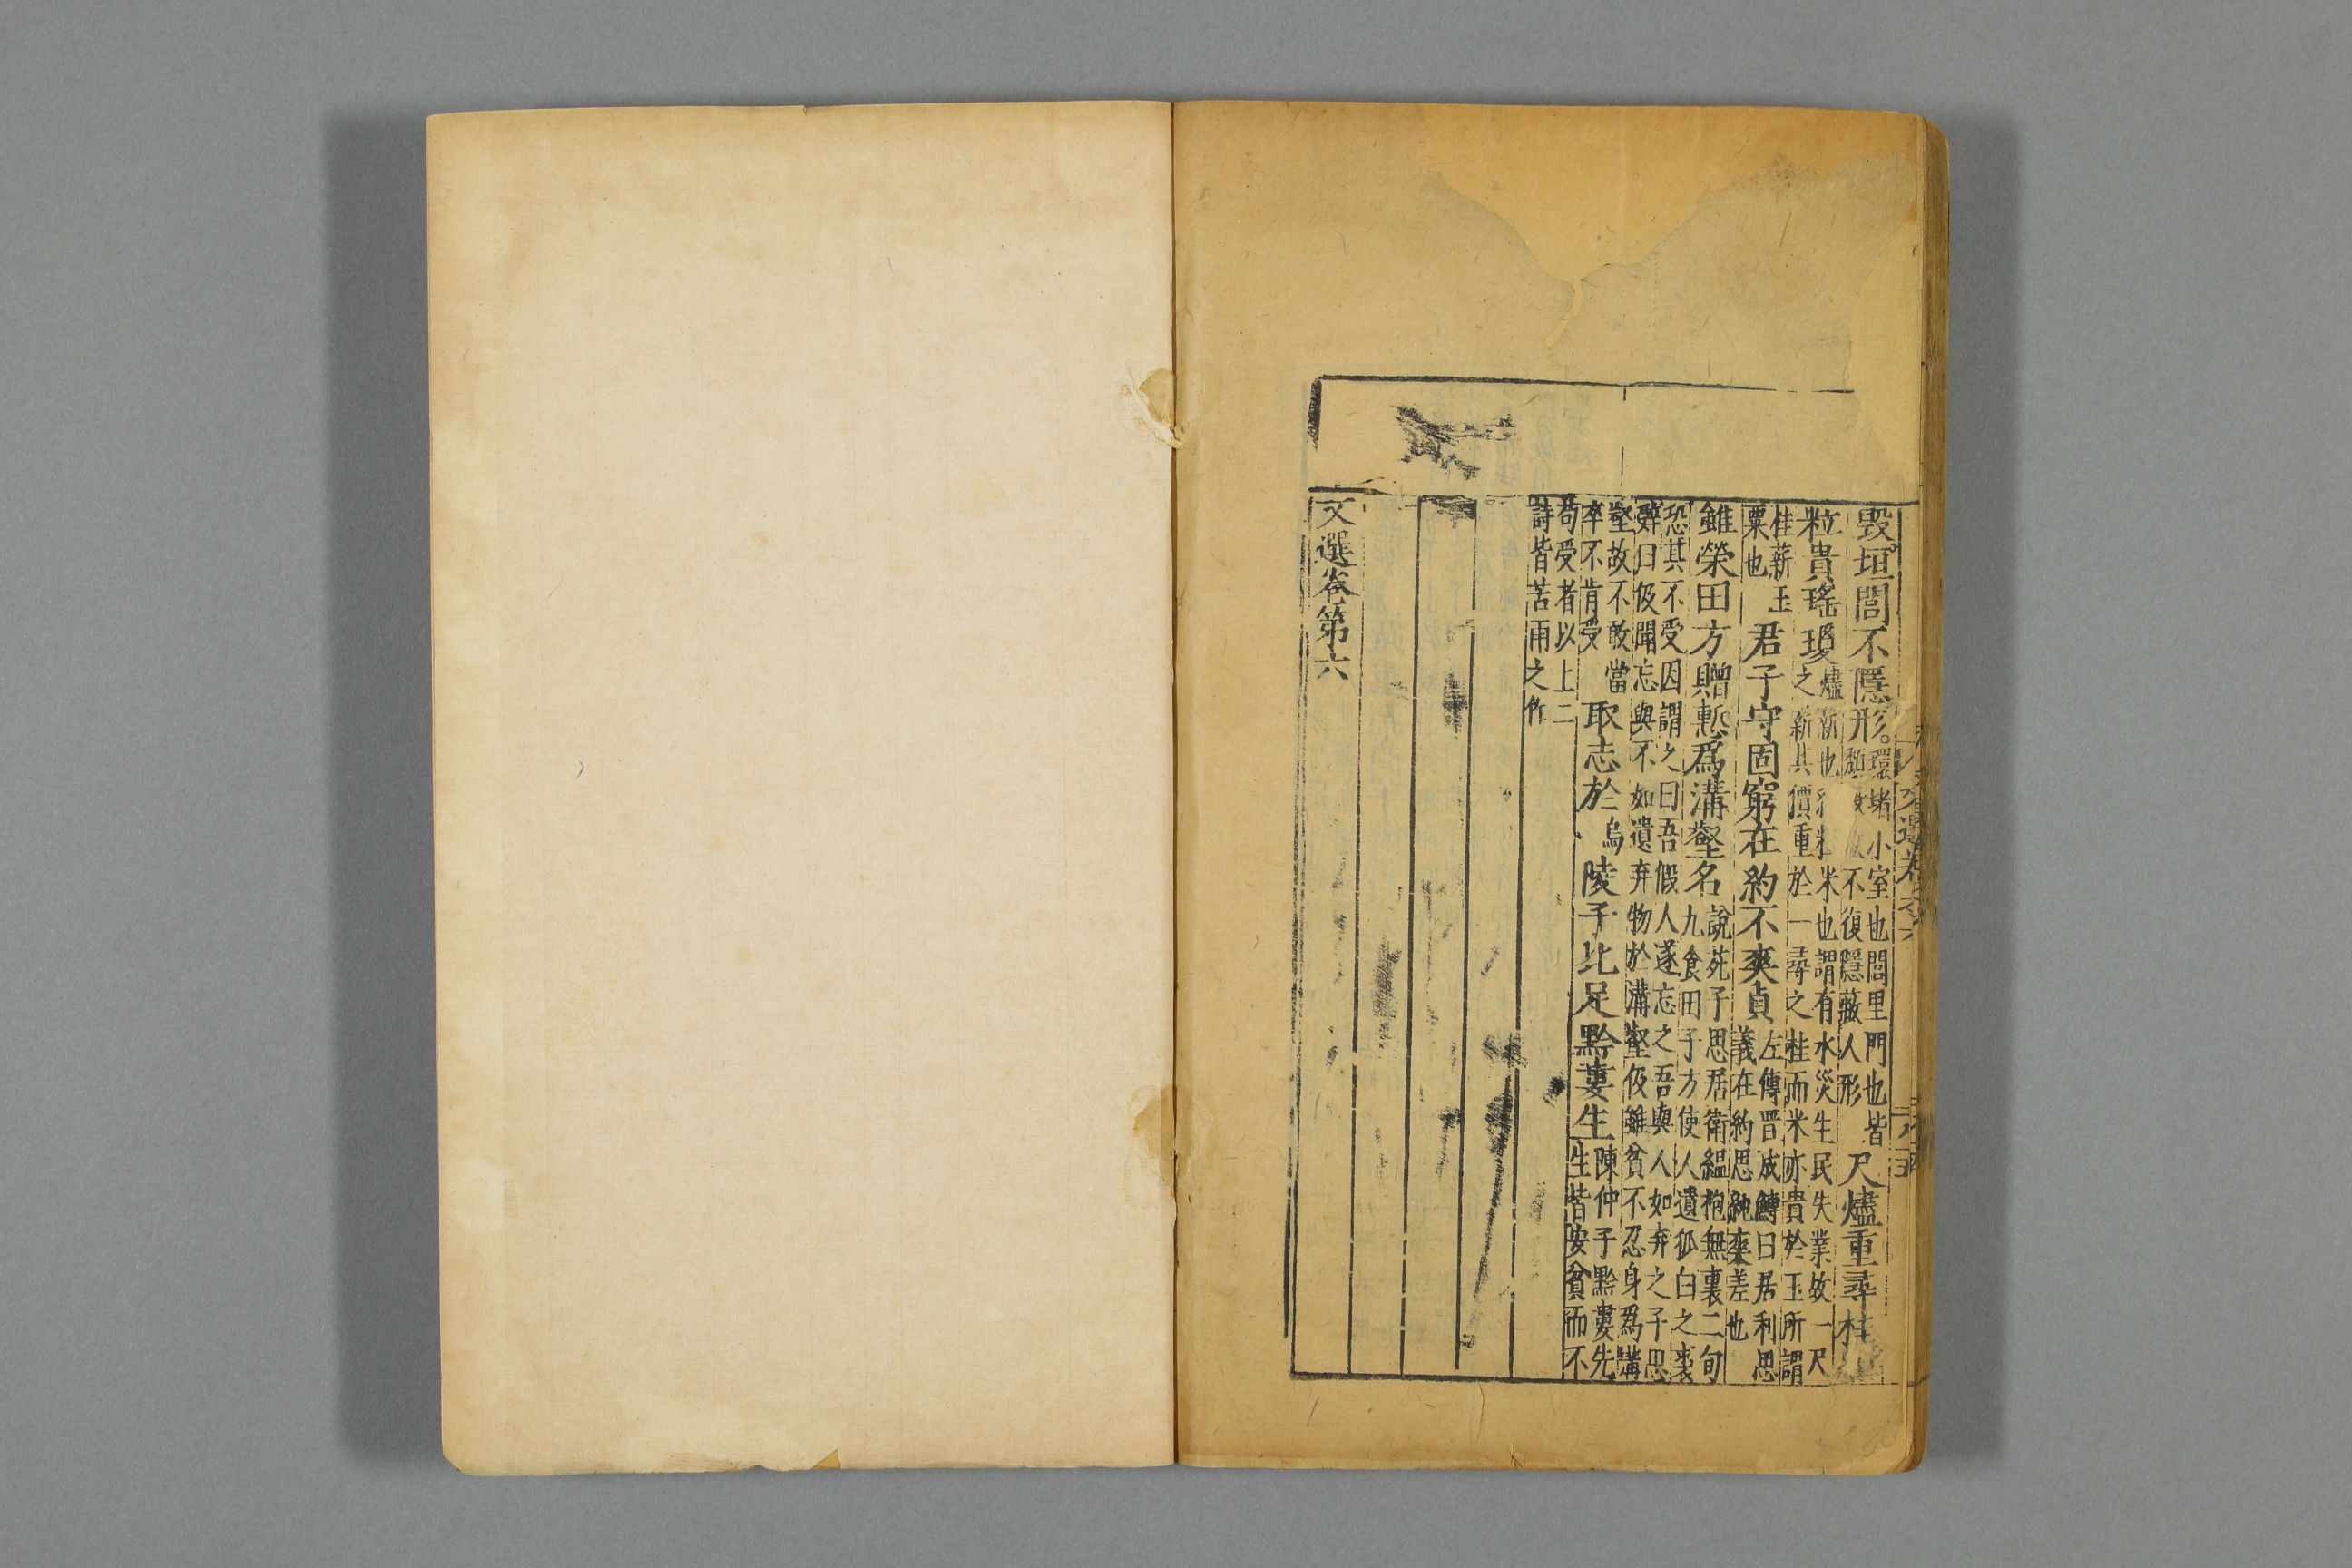 毀垣閭不隱形。環堵小室也閭里門也皆
頹毀故不復隱蔽人形尺燼重尋桂
粒貴瑤瓊燼薪也粒米也謂有水災生民失業故一尺
之薪其價重於一尋之桂而米亦貴於玉所謂
桂薪玉
粟也君子守固窮在約不爽貞左傳晋成鱄曰居利思
義在約思純爽差也
雖榮田方贈慙爲溝壑名說苑子思居衛縕袍無裏二旬
九食田子方使人遺狐白之裘
恐其不受因謂之曰吾假人遂忘之吾與人如弃之子思
辤曰伋聞忘與不如遺弃物於溝壑伋雖貧不忍身爲溝
壑故不敢當
卒不肯受取志於烏陵子比足黔婁生陳仲子黔婁先
生皆安貧而不
苟受者以上二
詩皆苦雨之作
文選卷第六